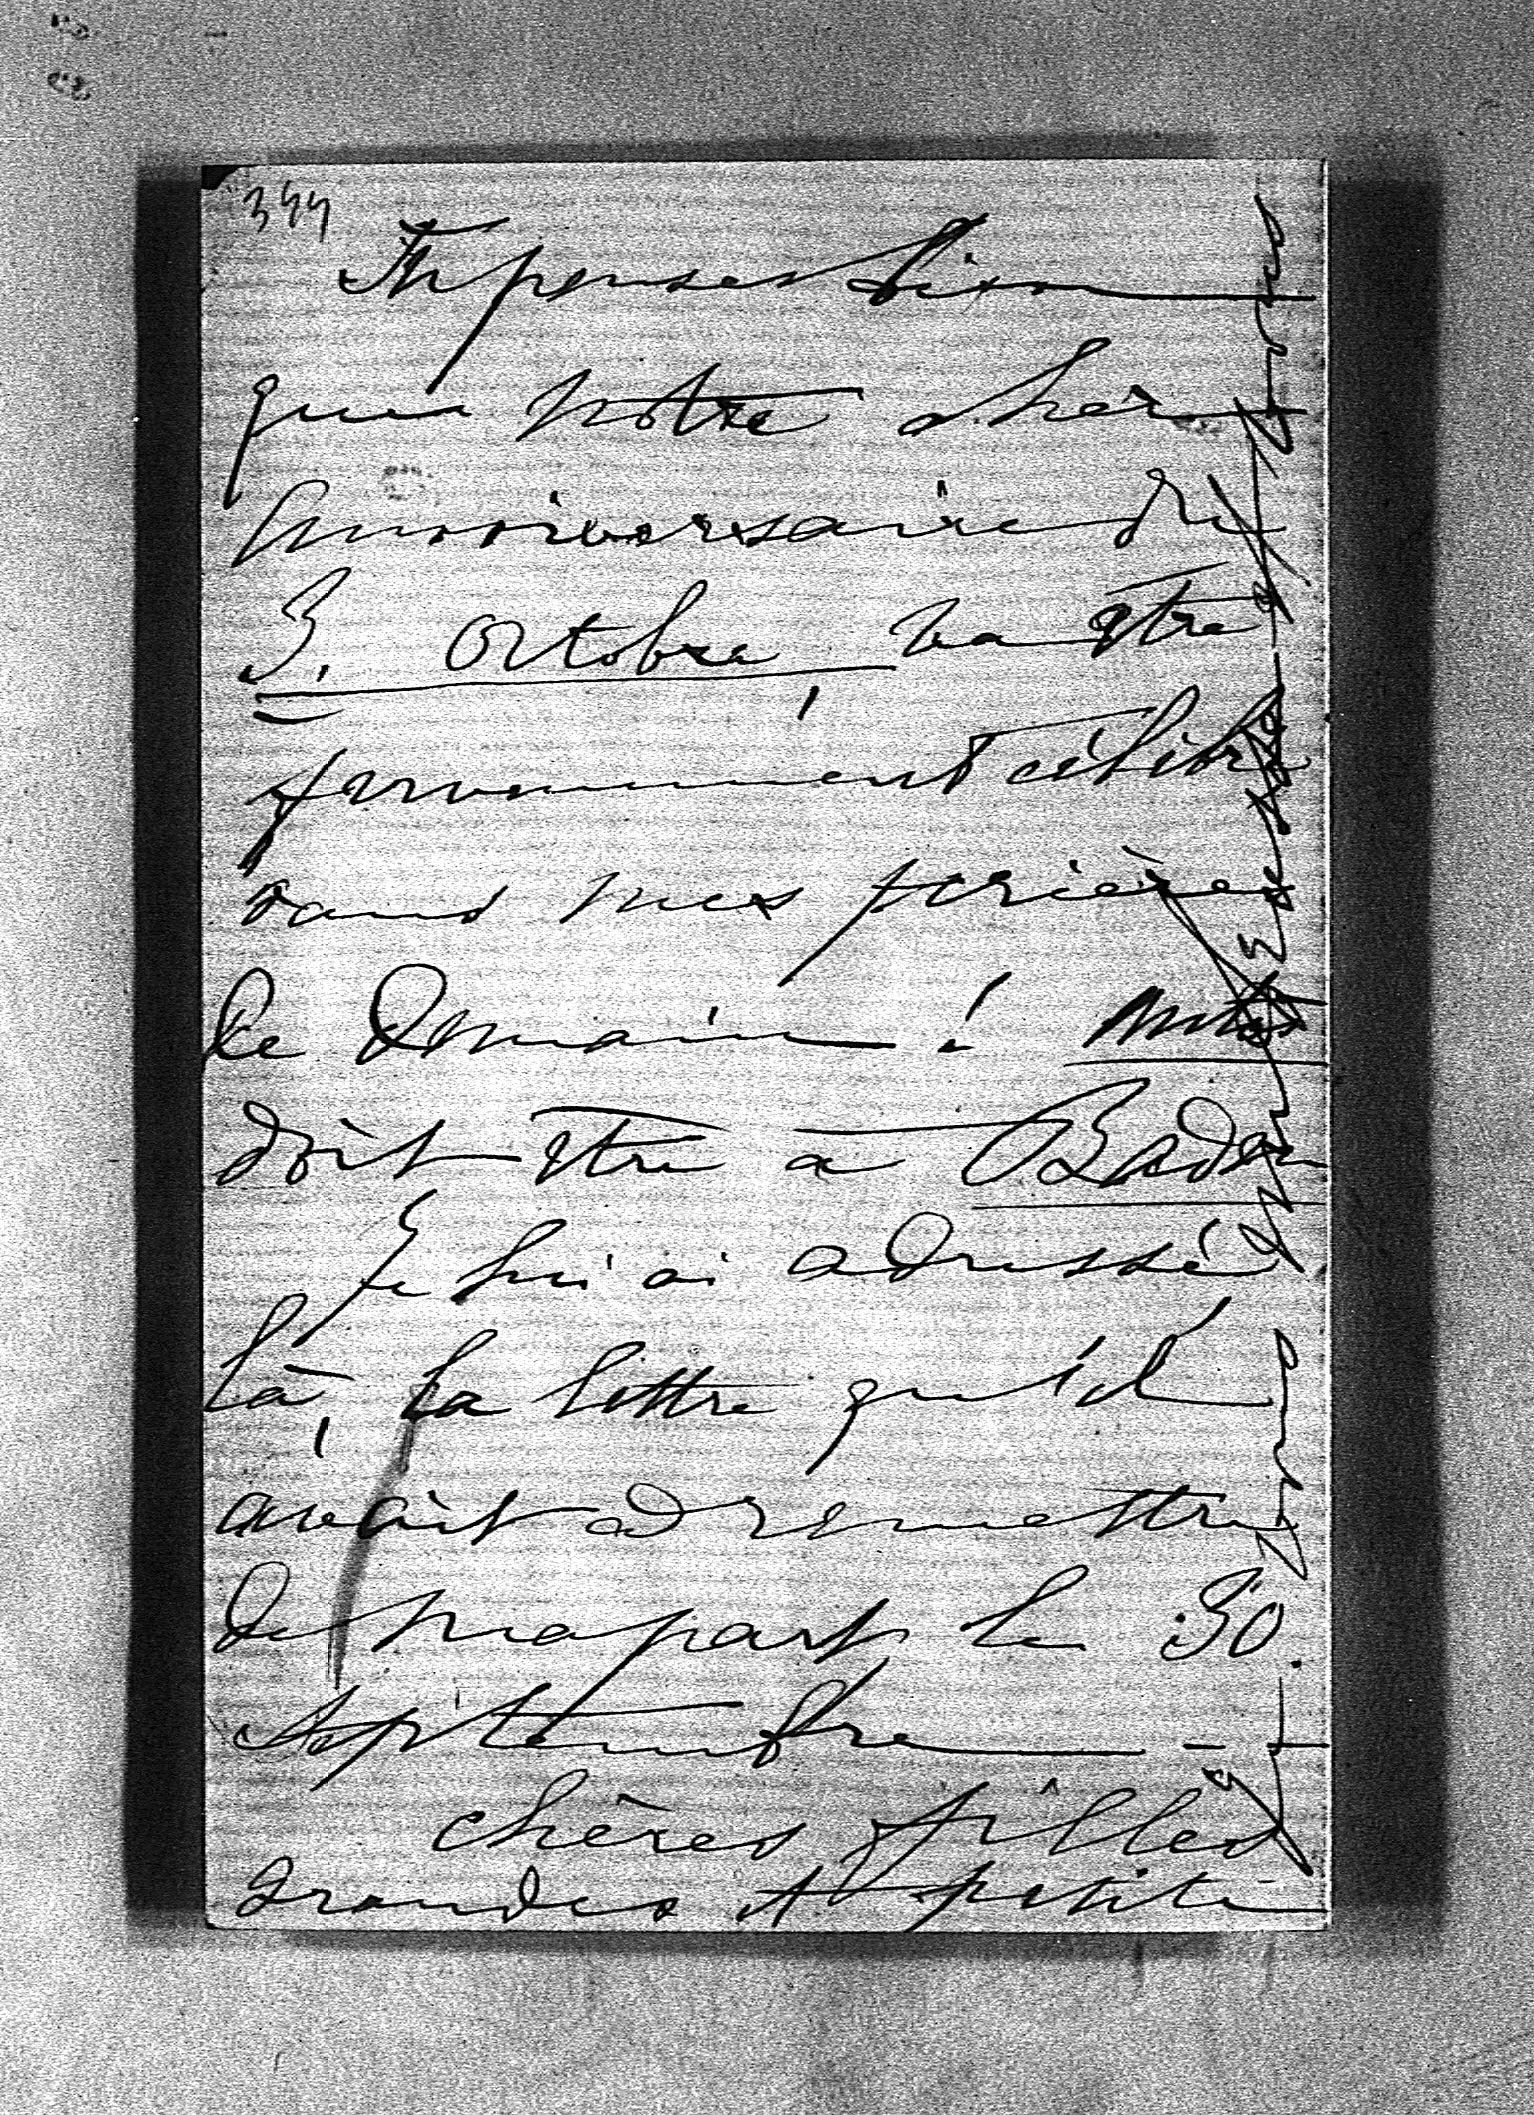 344
Tu penses bien
que notre cher
Anniversaire du
3. Octobre, va être
fervemment célébré
dans mes prières
le demain!
doit être à Baden
Je lui ai adressé
là, la lettre qu'il
avait à remettre
de ma part le 30.
Septembre —
chères filles
grandes et petite